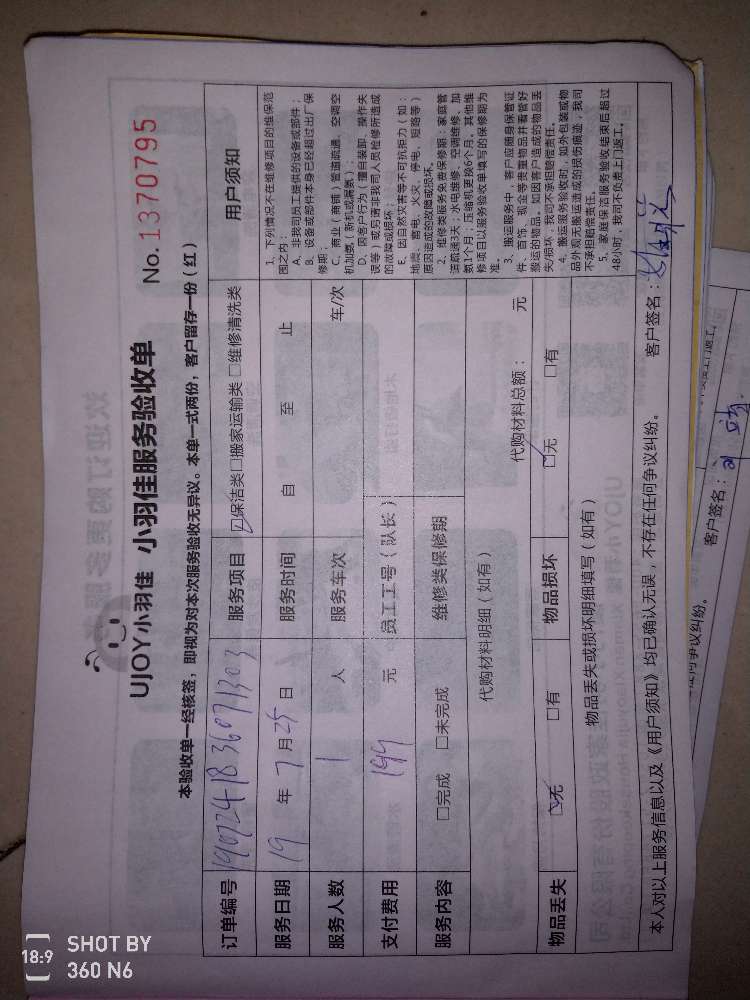 UJOY小羽佳 小羽佳服务验收单 No. 1370795
本验收单一经核签，即视为对本次服务验收无异议。本单一式两份，客户留存一份（红）
订单编号 服务项目 ☑保洁类□搬家运输类 □维修清洗类
服务日期 19 年 7 月 25 日 服务时间 自 至 止
服务人数 1 人 服务车次 车/次
支付费用 199 元 员工工号（队长）
服务内容 □完成 □未完成 维修类保修期
代购材料明细（如有） 代购材料总额： 元
物品丢失 ☑无 □有 物品损坏 ☑无 □有
物品丢失或损坏明细填写（如有）
用户须知
1、下列情况不在维修项目的维保范
围之内：
A、非我司员工提供的设备或部件；
B、设备或部件本身已经超过出厂保
修期；
C、商业（商铺）管道疏通、空调空
机加氨（新机或漏氨）；
D、因客户行为（擅自装卸、操作失
误等）或另请非我司人员检修所造成
的故障或损坏；
E、因自然灾害等不可抗拒力（如：
地震、雷电、火灾、停电、短路等）
原因造成的故障或损坏。
2、维修类服务免费保修期：家庭管
道疏通3天；水电维修、空调维修、加
氨1个月；压缩机更换6个月。其他维
修项目以服务验收单填写的保修期为
准。
3、搬运服务中，客户应随身保管证
件、首饰、现金等贵重物品并看管好
搬运的物品，如因客户造成的物品丢
失/损坏，我司不承担赔偿责任。
4、搬运服务验收时，如外包装或物
品外观无搬运造成的损伤痕迹，我司
不承担赔偿责任。
5、家庭保洁服务验收结束后超过
48小时，我司不负责上门返工。
本人对以上服务信息以及《用户须知》均已确认无误，不存在任何争议纠纷。 客户签名：
客户签名：
SHOT BY
360 N6
18:9